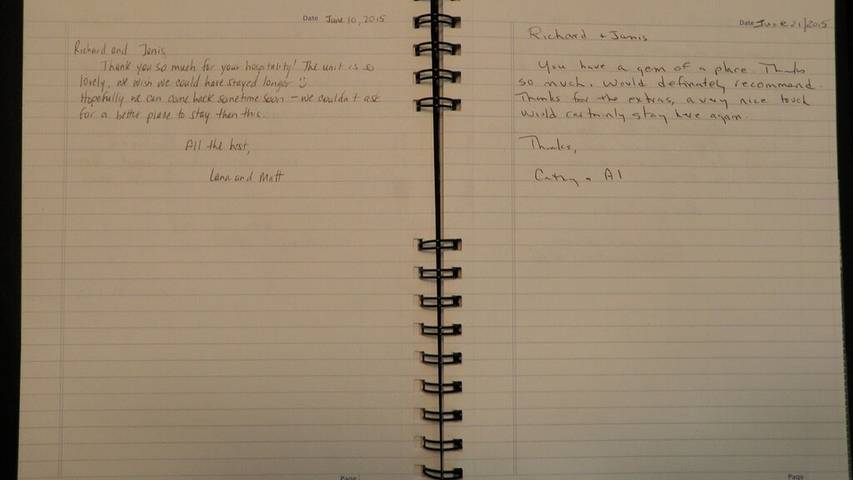 Date June 10, 2015
Richard and Janis
Thank you so much for your hospitality! The unit is so
lovely, we wish we could have stayed longer
Hopefully we can come back sometime soon - we couldn't ask
for a better place to stay then this.
All the best,
Lana and Matt
Page
Date June 21/2015
Richard + Janis
You have a gem of a place. Thanks
so much. Would definately recommend.
Thanks for the extras, a very nice touch
Would certainly stay here again.
Thanks,
Cathy + Al
Page